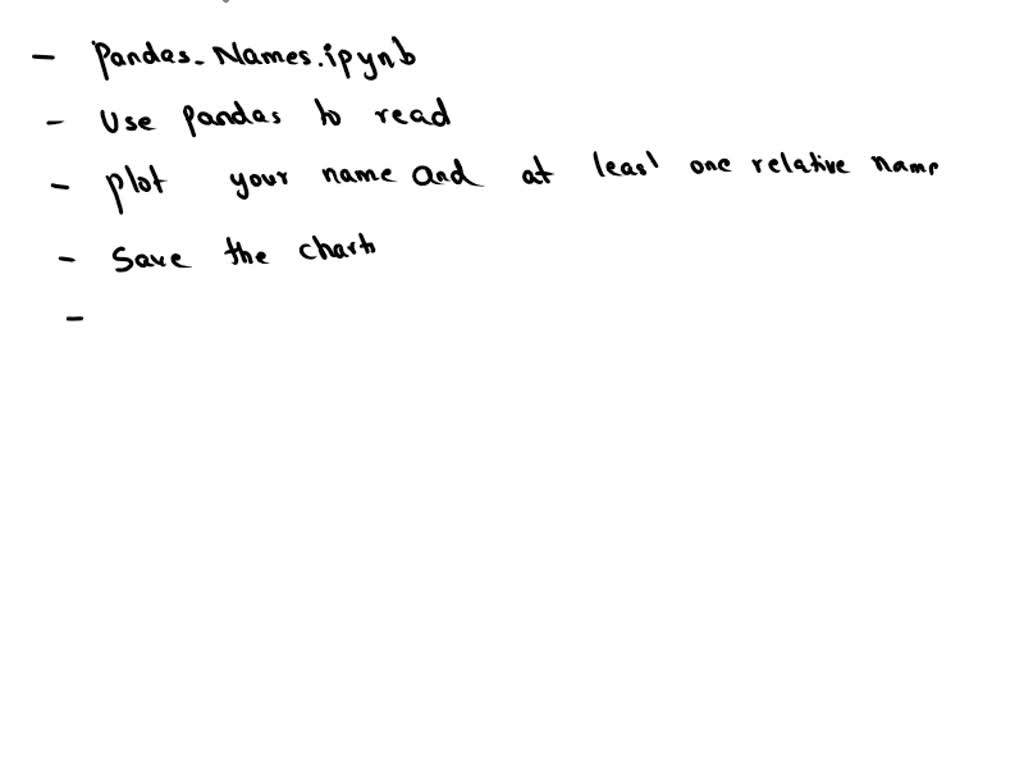 - Pandas_Names.ipynb
- Use pandas to read
- plot your name and at least one relative name
- Save the chart
-